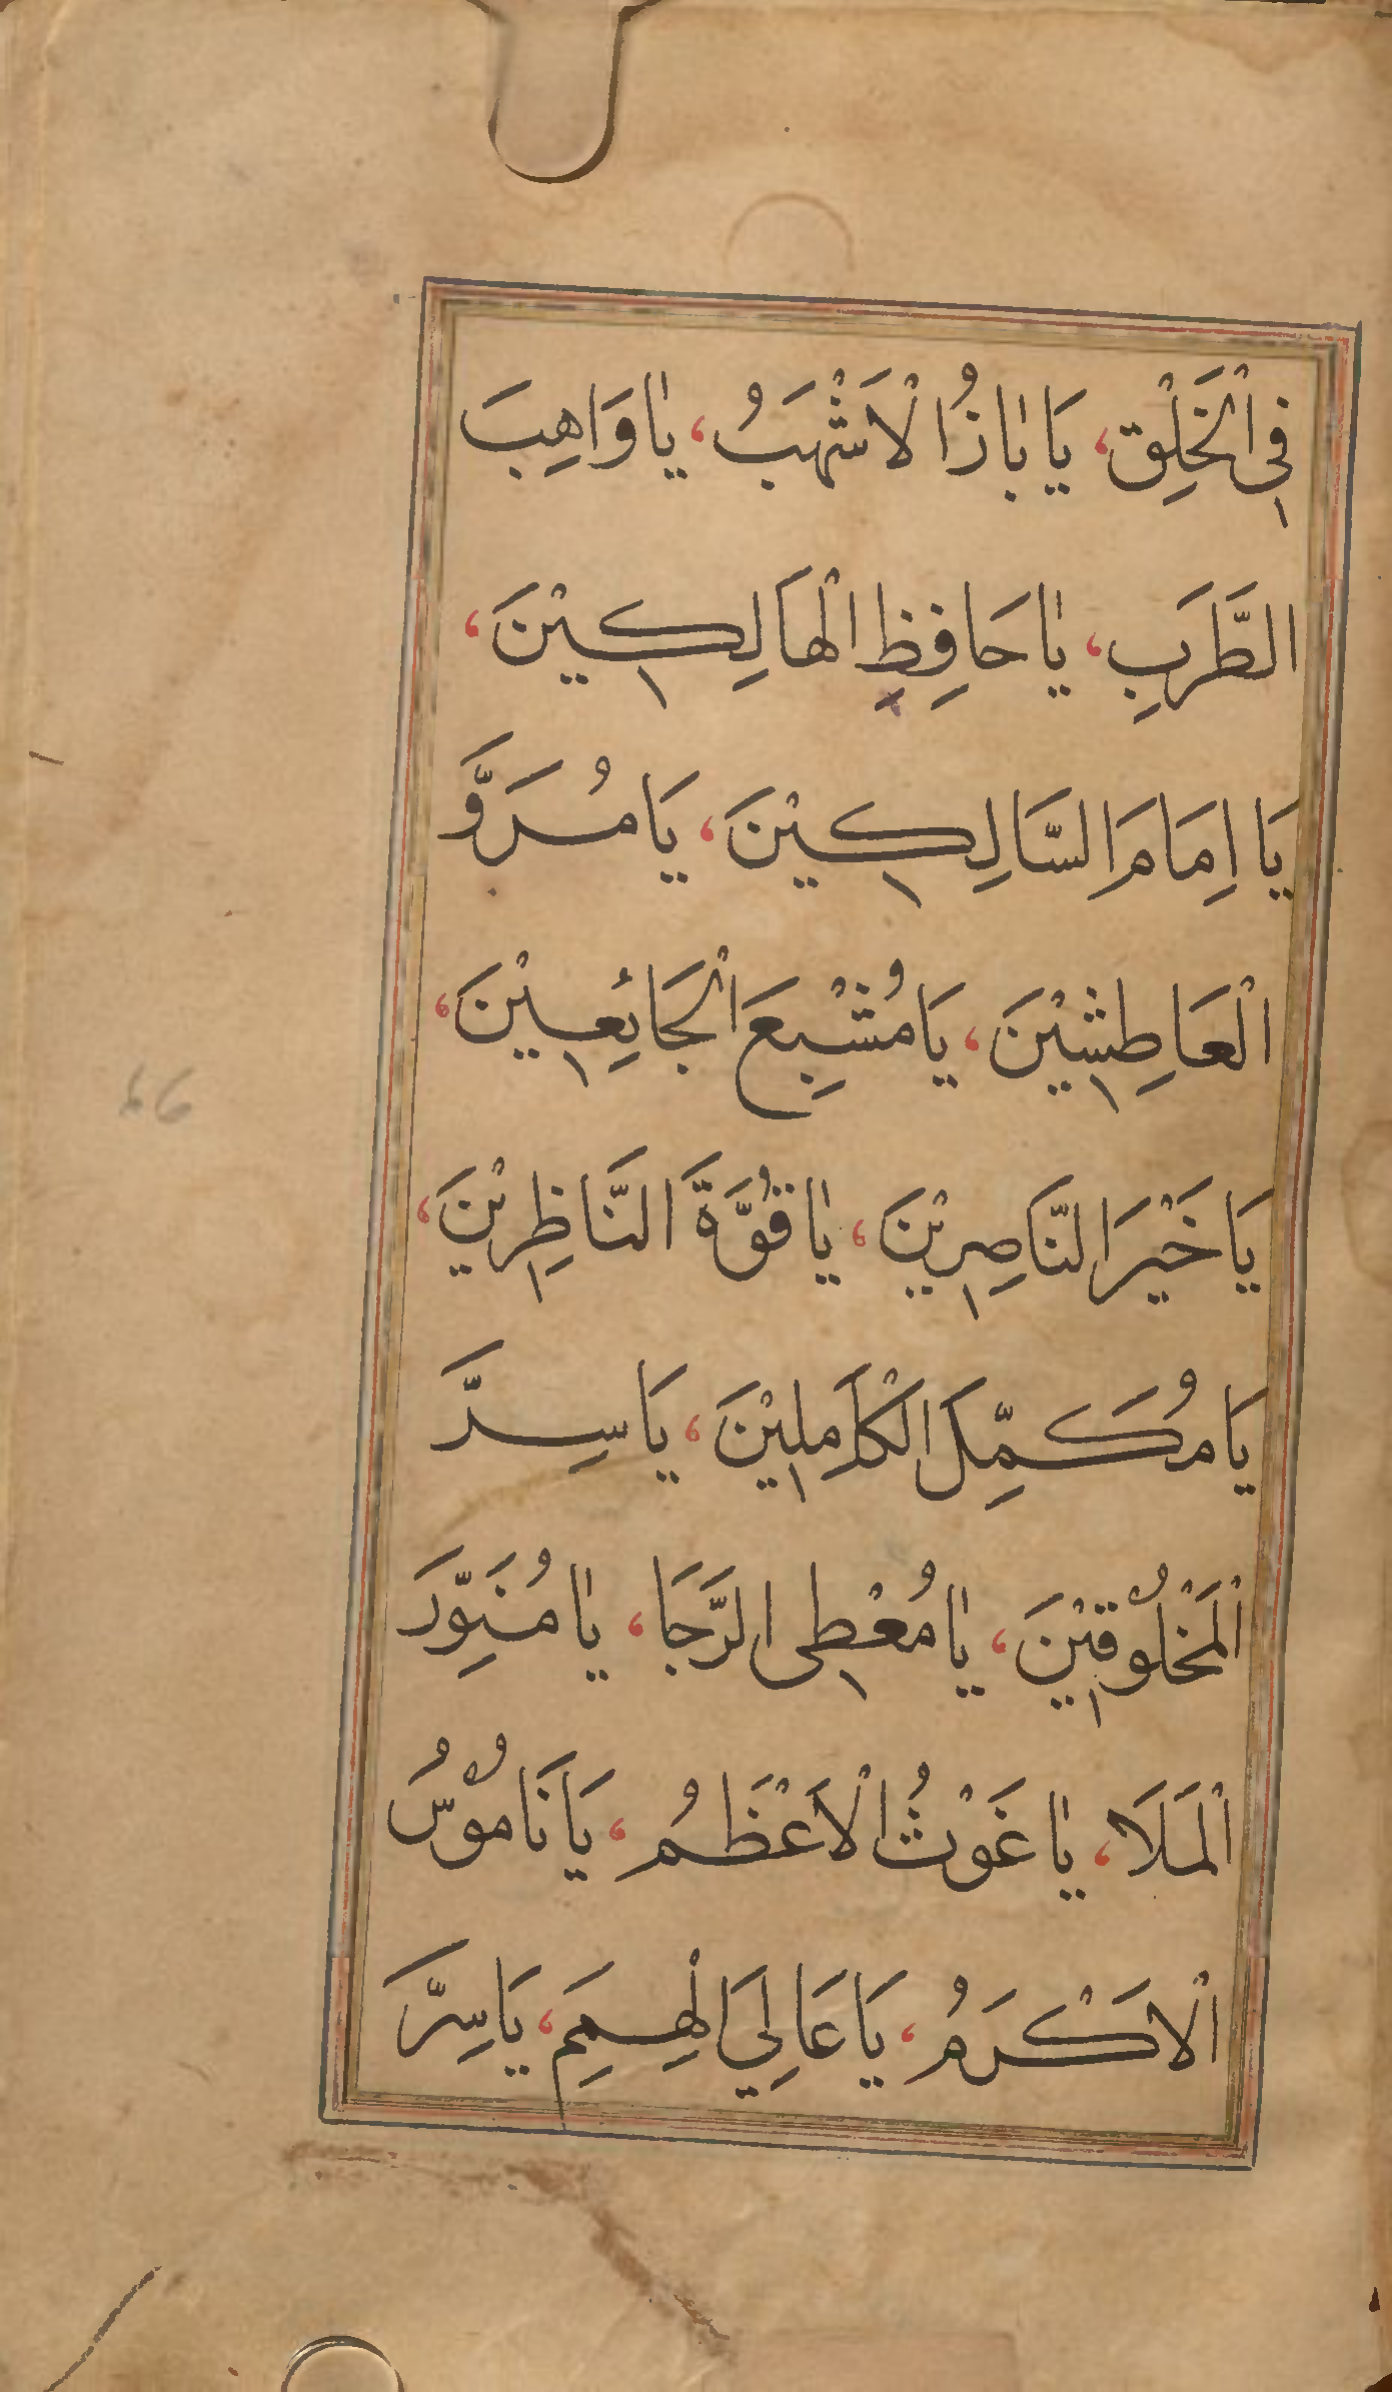 فِی الْخَلْقِ، يَا بَازُ الْاَشْهَبُ، يَا وَاهِبَ
الطَّرَبِ، يَا حَافِظِ الْهَالِكِيْنَ،
يَا اِمَامَ السَّالِكِيْنَ، يَا مُرَوَّ
الْعَاطِشِيْنَ، يَا مُشْبِعَ الْجَائِعِيْنَ،
يَا خَيْرَ النَّاصِرِيْنَ، يَا قُوَّةَ النَّاظِرِيْنَ،
يَا مُكَمِّلَ الْكَامِلِيْنَ، يَا سِرَّ
الْمَخْلُوْقِيْنَ، يَا مُعْطِی الرَّجَا، يَا مُنَوِّرَ
الْمَلَا، يَا غَوْثُ الْاَعْظَمُ، يَا نَامُوْسُ
الْاَكْرَمُ، يَا عَالِيَ الْهِمَمِ، يَا سِرَّ